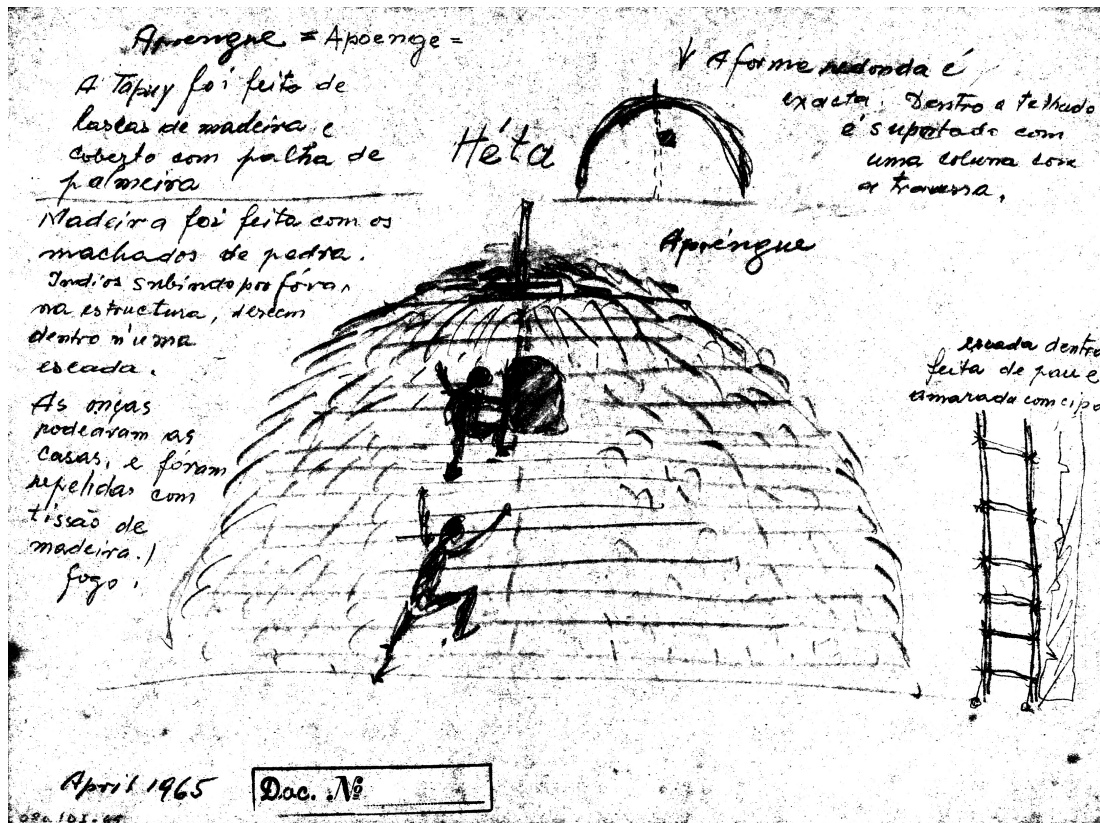 Apoengue = Apoenge =
A Tapuy foi feito de
lascas de madeira e
coberto com palha de
palmeira
Madeira foi feita com os
machados de pedra.
Indios subindo por fóra,
na estructura, descem
dentro n'uma
escada.
As onças
rodearam as
casas, e fóram
repelidas com
tissão de
madeira.)
fogo.
Héta
A forma redonda é
exacta. Dentro o telhado
é suportado com
uma coluna com
a travessa.
Apoéngue
escada dentro
feita de pau e
amarada com cipo
April 1965
Doc. Nº